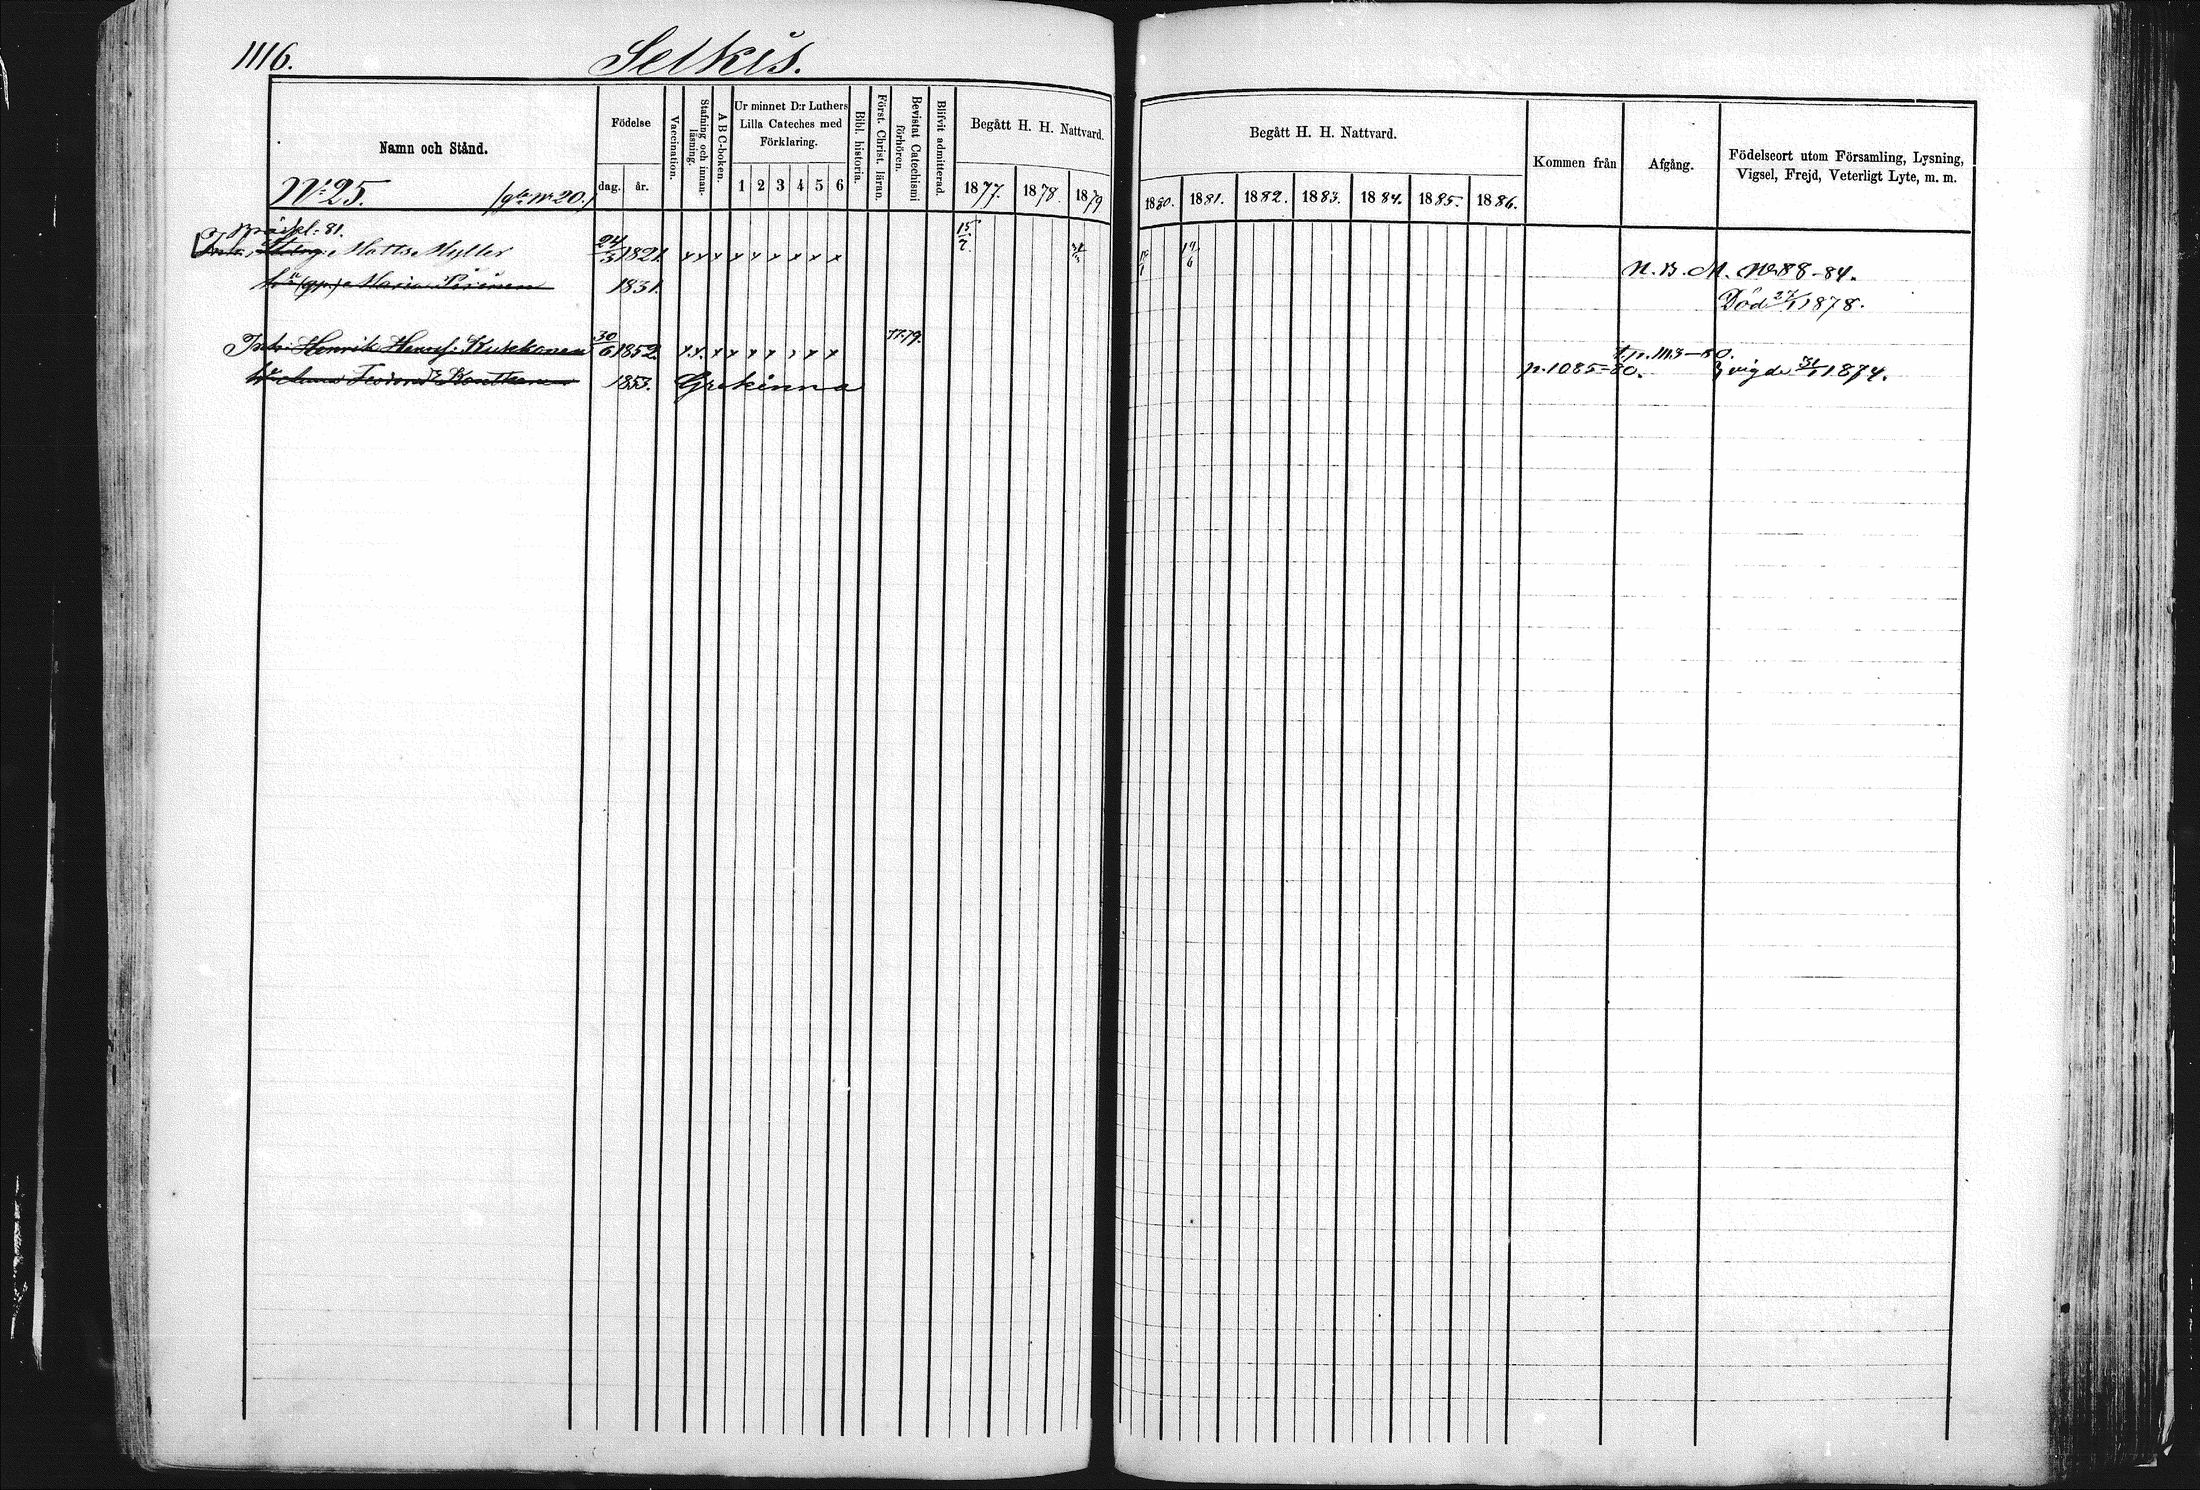 1116.
Selkis.
Namn och Stånd.
Födelse
dag. år.
Vaccination.
Stafning och innan-läsning.
A B C-boken.
Ur minnet D:r Luthers
Lilla Cateches med
Förklaring.
1 2 3 4 5 6
Bibl. historia.
Först. Christ. läran.
Bevistat Catechismi förhören.
Blifvit admitterad.
Begått H. H. Nattvard.
1877. 1878. 1879
Begått H. H. Nattvard.
1880. 1881. 1882. 1883. 1884. 1885. 1886.
Kommen från
Afgång.
Födelseort utom Församling, Lysning,
Vigsel, Frejd, Veterligt Lyte, m. m.
No 25. 20.)
81.
Matts Myller 24/3 1821. x x x x x x x x x 15/7
N. B. M. No 88-84.
Maria 1831.
Död 27/1 1878.
Inh: Henrik Henrsf: Kukkonen 30/6 1852. x x x x x x x x x 77.79.
p. 1113-80.
Anna 1853. Grekinna p. 1085-80. vigde 1874.